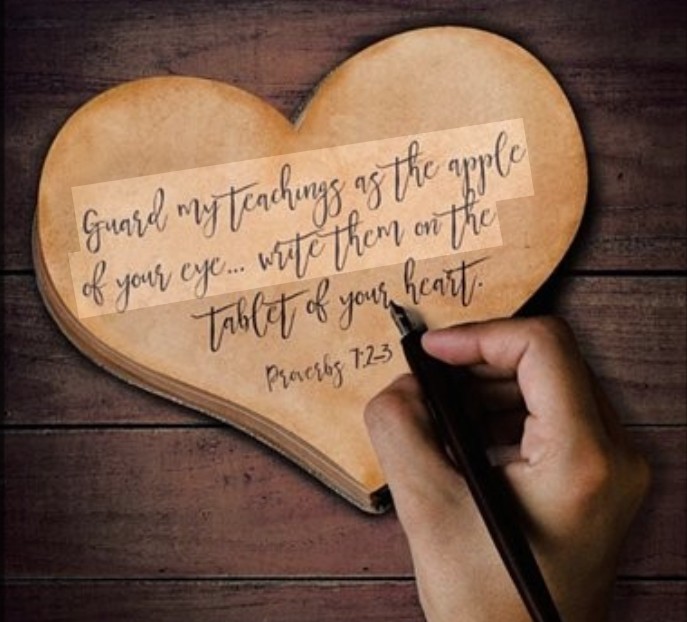 Guard my teachings as the apple
of your eye... write them on the
tablet of your heart.
Proverbs 7:2-3